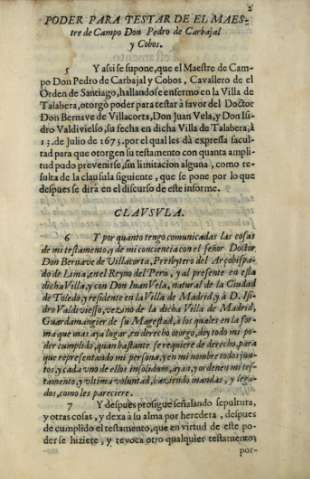 2
PODER PARA TESTAR DE EL MAES-
tre de Campo Don Pedro de Carbajal
y Cobos.
5 Y assi se supone, que el Maestre de Cam-
po Don Pedro de Carbajal y Cobos, Cavallero de el
Orden de Santiago, hallandose enfermo en la Villa de
Talabera, otorgò poder para testar à favor del Doctor
Don Bernave de Villacorta, Don Juan Vela, y Don Isi-
dro Valdivielso, su fecha en dicha Villa de Talabera, à
13. de Julio de 1675. por el qual les dà expressa facul-
tad para que otorguen su testamento con quanta ampli-
tud pudo prevenirse, sin limitacion alguna, como re-
sulta de la clausula siguiente, que se pone por lo que
despues se dirà en el discurso de este informe.
CLAVSVLA.
6 Y por quanto tengo comunicadas las cosas
de mi testamento, y de mi conciencia con el señor Doctor
Don Bernave de Villacorta, Presbytero del Arçobispa-
do de Lima, en el Reyno del Perù, y al presente en esta
dicha Villa, y con Don Iuan Vela, natural de la Ciudad
de Toledo, y residente en la Villa de Madrid, y à D. Isi-
dro Valdivielso, vezino de la dicha Villa de Madrid,
Guardamangier de su Magestad, à los quales en la for-
ma que mas aya lugar, en derecho otorgo, doy todo mi po-
der cumplido, quan bastante se requiere de derecho, para
que representando mi persona, y en mi nombre todos jun-
tos, y cada vno de ellos insolidum, ayan, y ordenen mi tes-
tamento, y vltima voluntad, haziendo mandas, y lega-
dos, como les pareciere.
7 Y despues prosigue señalando sepultura,
y otras cosas, y dexa à su alma por heredera, despues
de cumplido el testamento, que en virtud de este po-
der se hiziere, y revoca otro qualquier testamento
por-